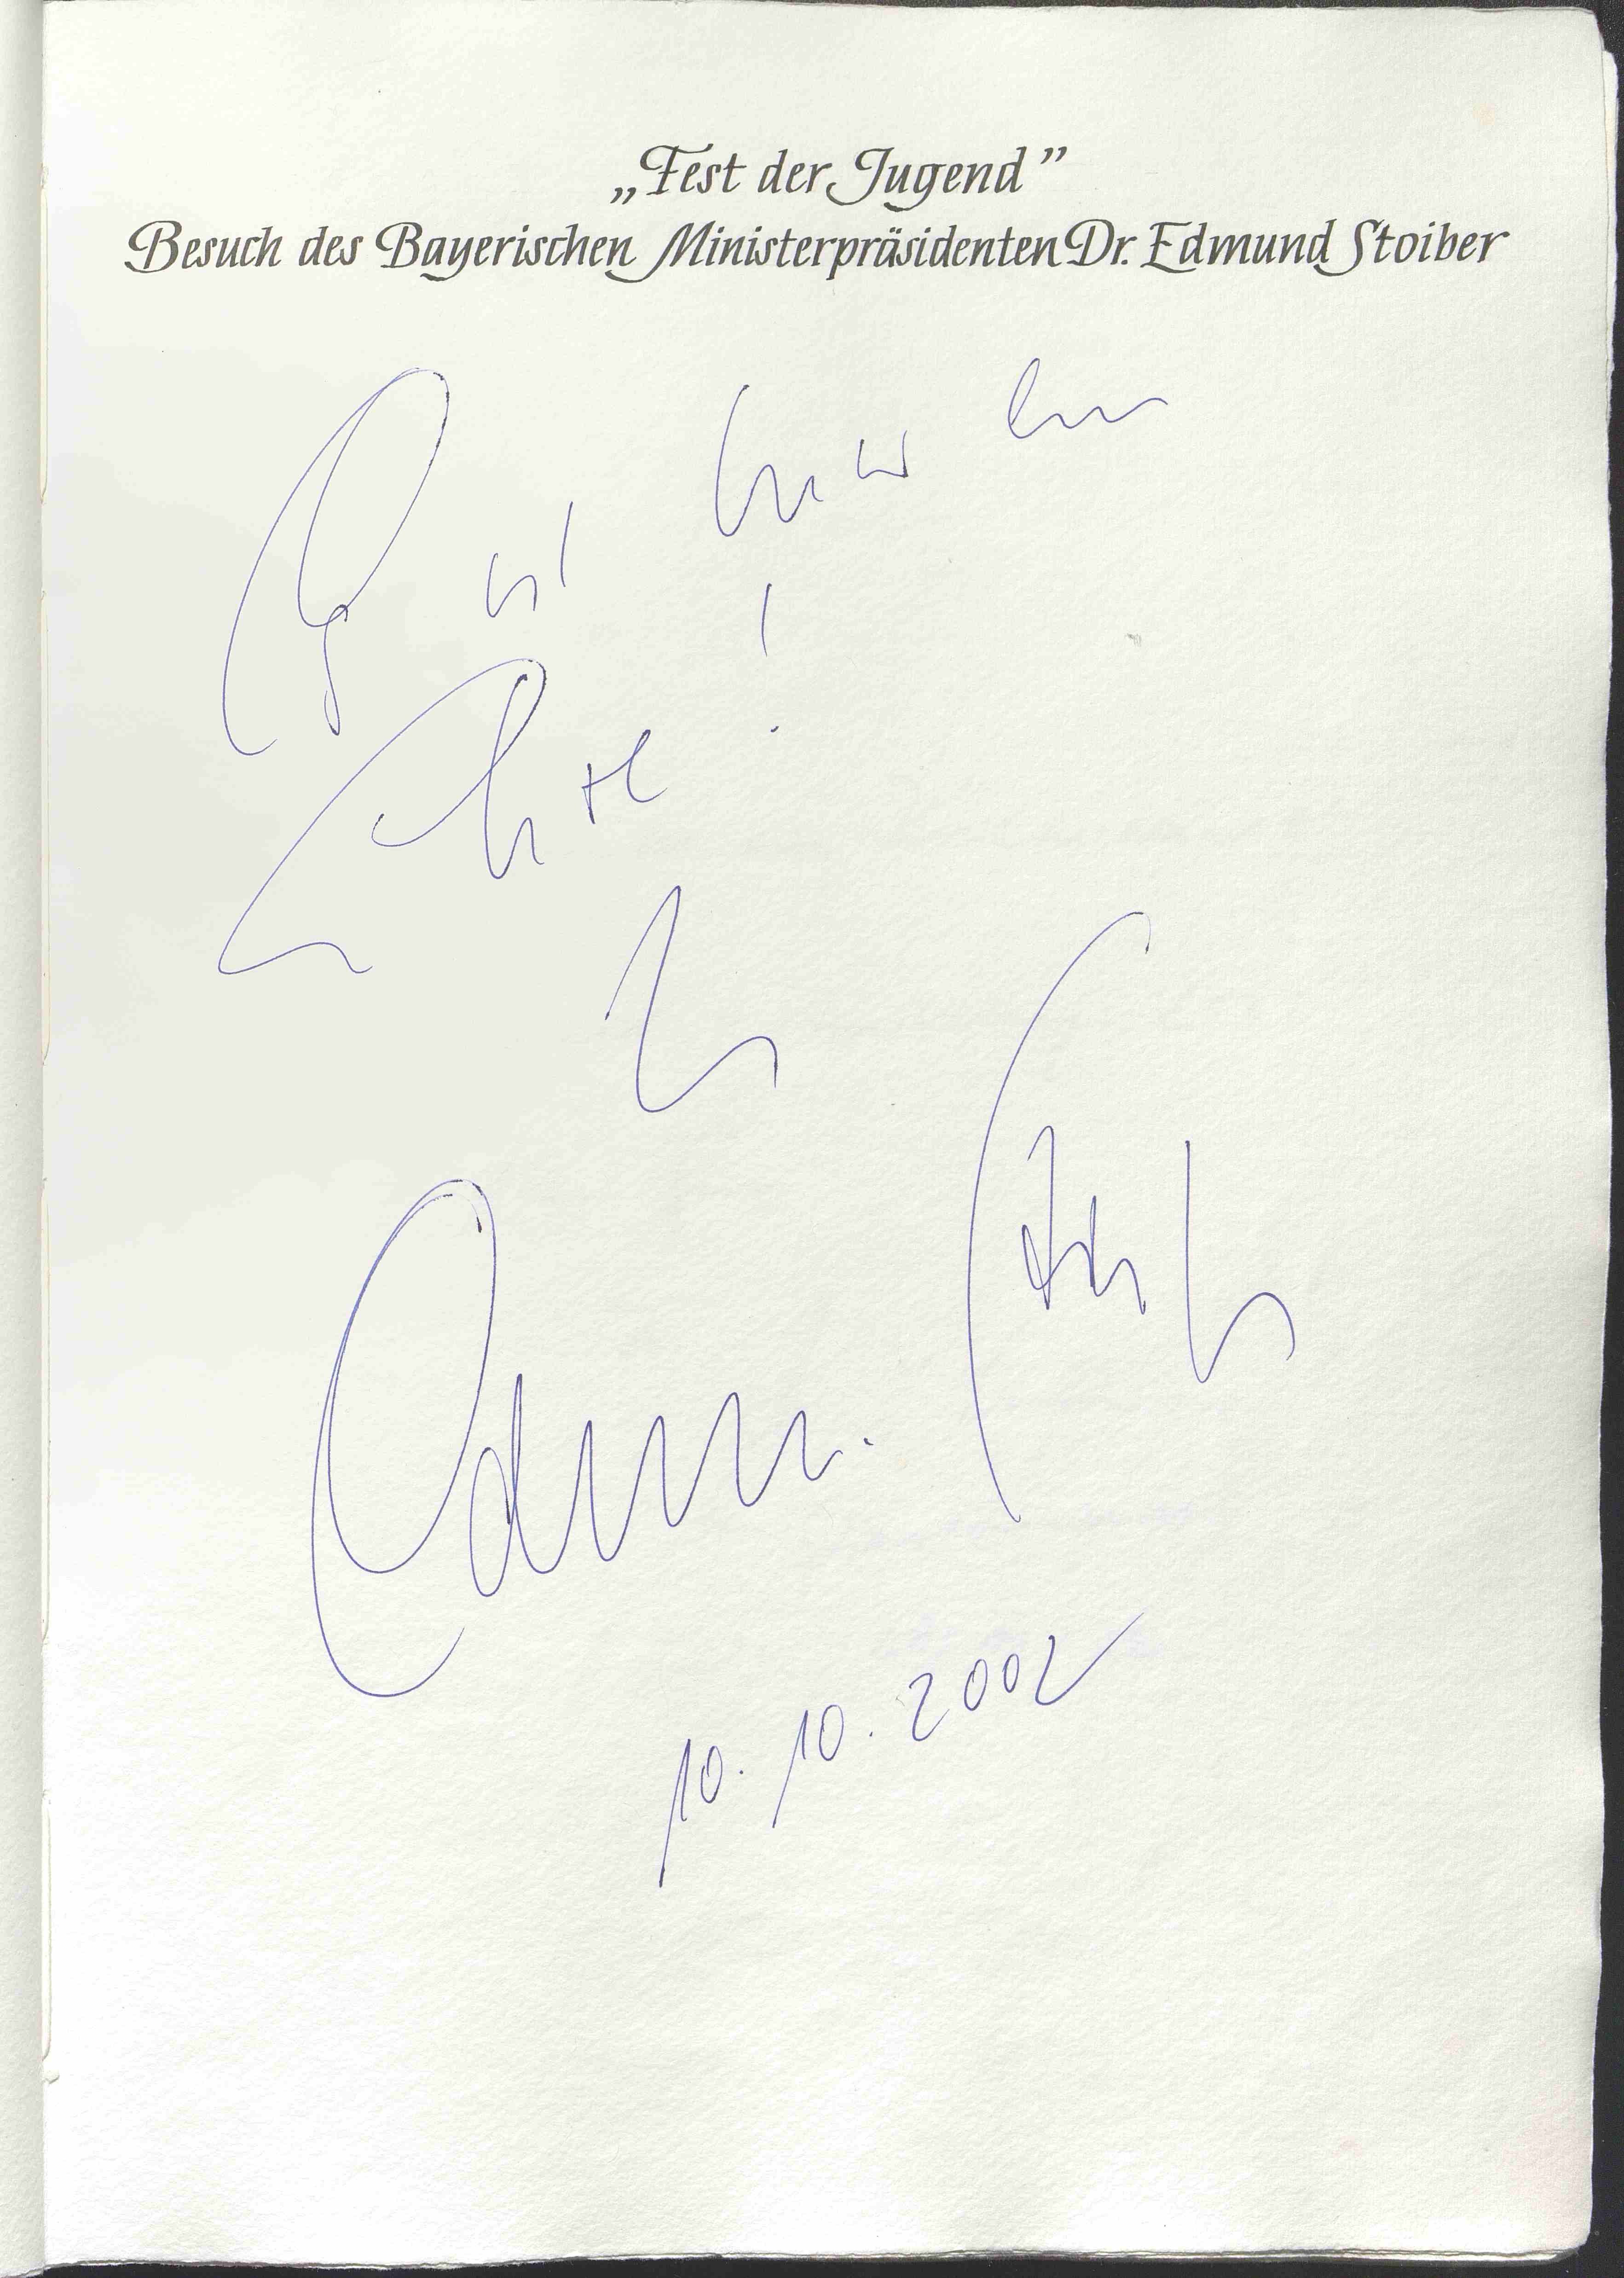 „Fest der Jugend”
Besuch des Bayerischen Ministerpräsidenten Dr. Edmund Stoiber
Es ist immer eine
Ehre!
Ihr
Edmund Stoiber
10.10.2002